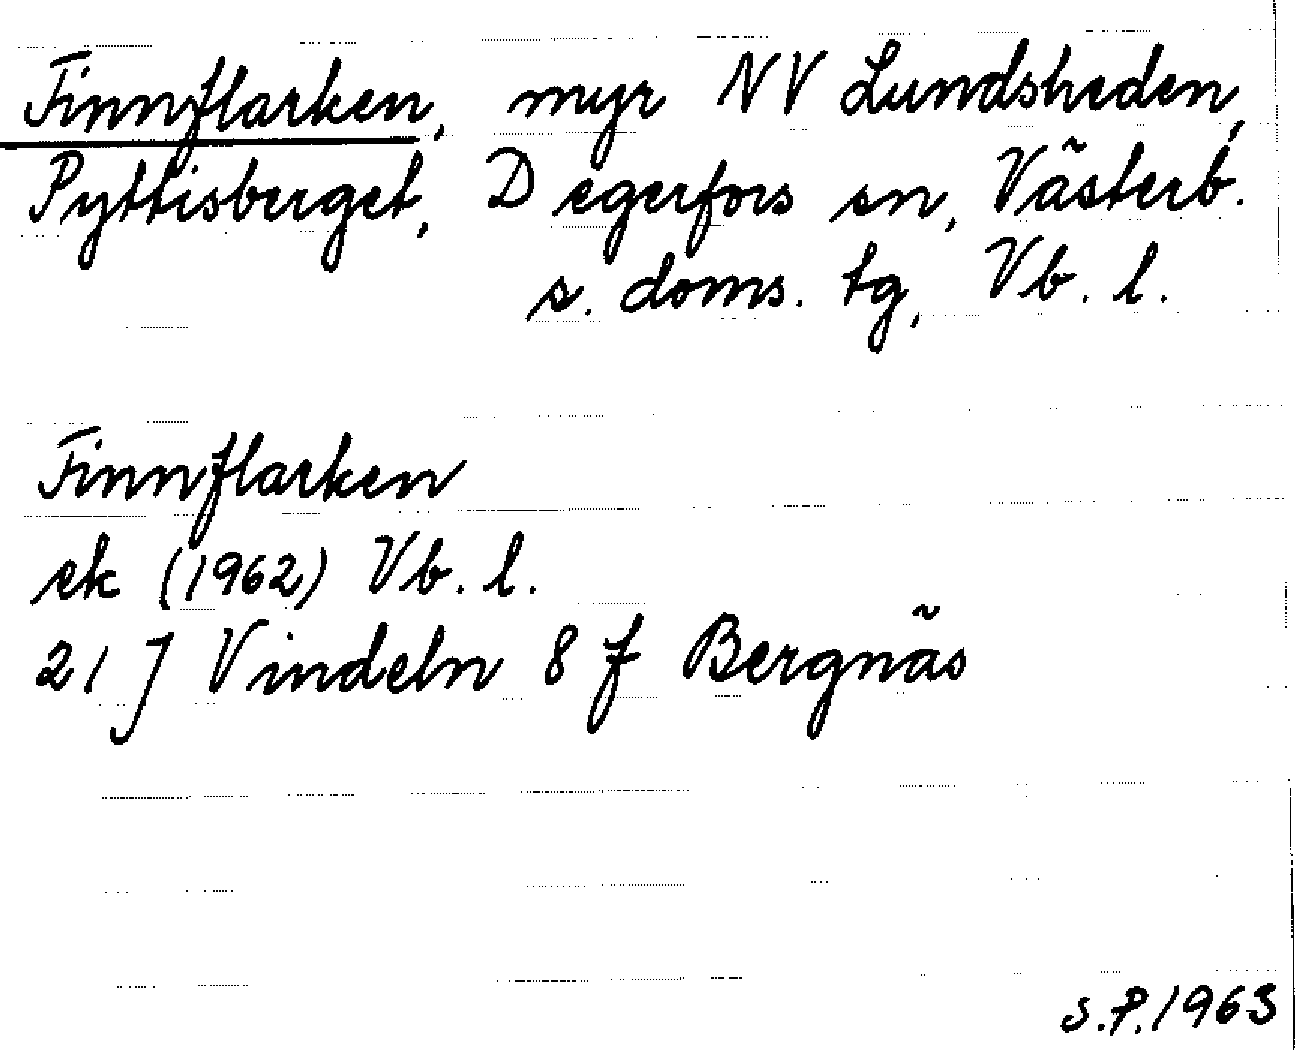 Finnflarken, myr NV Lundsheden,
Pyttisberget, Degerfors sn, Västerb.
s. doms. tg, Vb. l.
Finnflarken
ek (1962) Vb. l.
21 J Vindeln 8 f Bergnäs
S.P. 1963